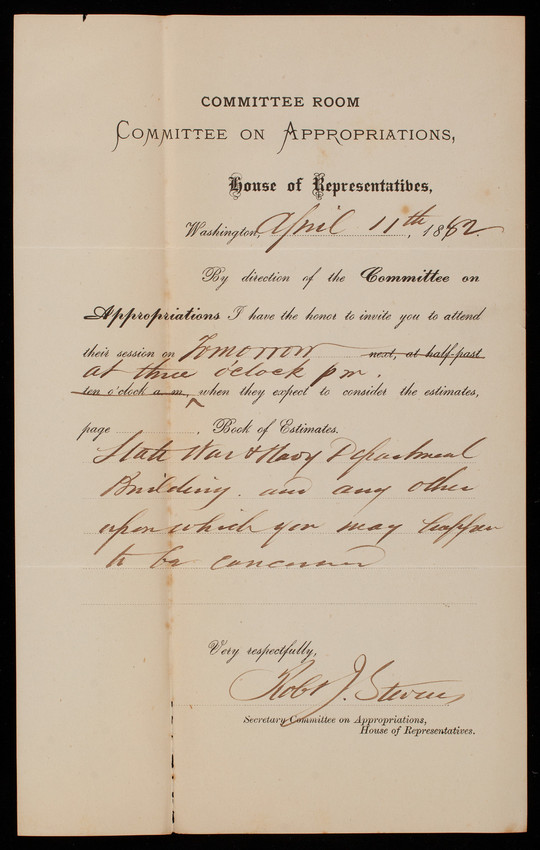 COMMITTEE ROOM
COMMITTEE ON APPROPRIATIONS,
House of Representatives,
Washington, April 11th, 1882.
By direction of the Committee on
Appropriations I have the honor to invite you to attend
their session on Tomorrow next, at half-past
at three o'clock p m.
ten o'clock a. m., when they expect to consider the estimates,
page , Book of Estimates.
State War & Navy Department
Building. and any other
upon which you may happen
to be concerned
Very respectfully,
Robt J. Stevens
Secretary Committee on Appropriations,
House of Representatives.